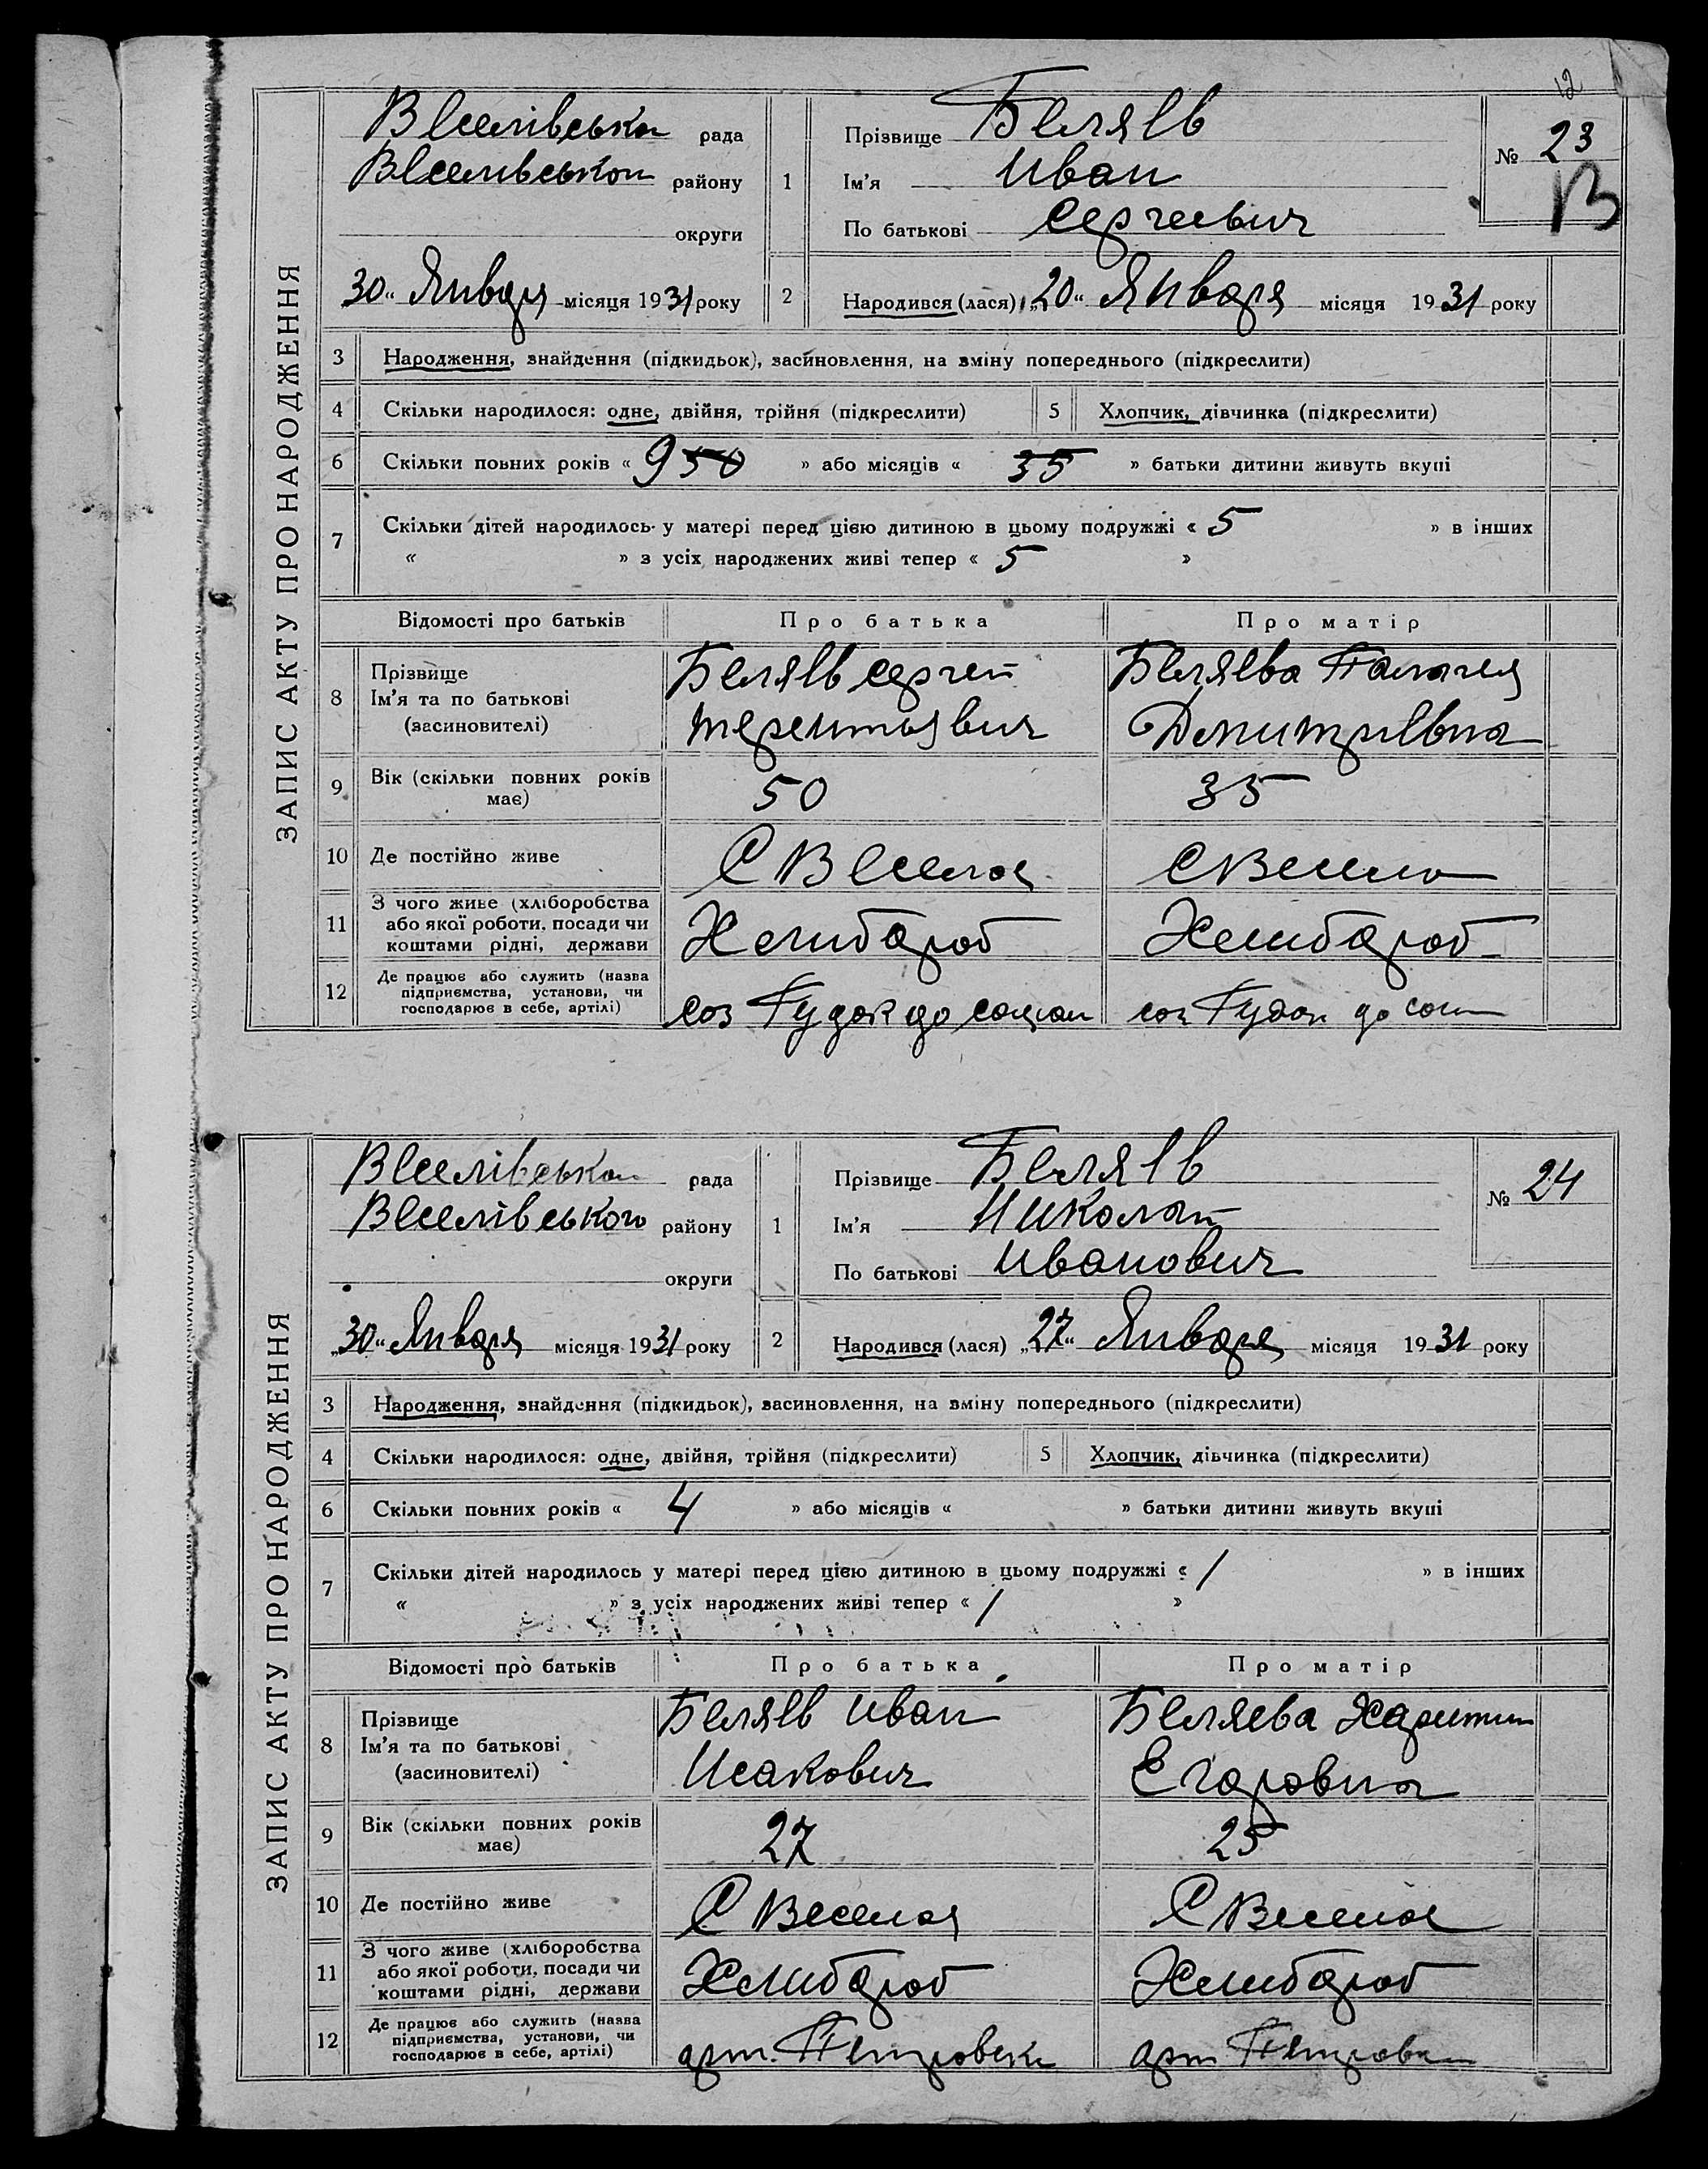 12
ЗАПИС АКТУ ПРО НАРОДЖЕННЯ
Веселівська рада
Веселівського району
округи
30 „ Января місяця 1931 року
1
Прізвище Беляев
Ім’я Иван
По батькові Сергеевич
№ 23
2
Народився (лася) „20“ Января місяця 1931 року
3 Народження, знайдення (підкидьок), засиновлення, на зміну попереднього (підкреслити)
4 Скільки народилося: одне, двійня, трійня (підкреслити) 5 Хлопчик, дівчинка (підкреслити)
6 Скільки повних років « 9 50 » або місяців « 35 » батьки дитини живуть вкупі
7 Скільки дітей народилось у матері перед цією дитиною в цьому подружжі « 5 » в інших
« » з усіх народжених живі тепер « 5 »
Відомості про батьків Про батька Про матір
8 Прізвище Ім’я та по батькові (засиновителі)
Беляев Сергей Беляева Палагея
терентьявич Дмитриевна
9 Вік (скільки повних років має) 50 35
10 Де постійно живе С Веселое С Весело
11 З чого живе (хліборобства або якої роботи, посади чи коштами рідні, держави Хлибороб Хлибороб
12 Де працює або служить (назва підприємства, установи, чи господарює в себе, артілі) соз Гудок до соз Гудок до
ЗАПИС АКТУ ПРО НАРОДЖЕННЯ
Веселівської рада
Веселівського району
округи
„30“ Января місяця 1931 року
1
Прізвище Беляев
Ім’я Николай
По батькові Иванович
№ 24
2
Народився (лася) „27“ Января місяця 1931 року
3 Народження, знайдення (підкидьок), засиновлення, на зміну попереднього (підкреслити)
4 Скільки народилося: одне, двійня, трійня (підкреслити) 5 Хлопчик, дівчинка (підкреслити)
6 Скільки повних років « 4 » або місяців « » батьки дитини живуть вкупі
7 Скільки дітей народилось у матері перед цією дитиною в цьому подружжі « 1 » в інших
« » з усіх народжених живі тепер « 1 »
Відомості про батьків Про батька Про матір
8 Прізвище Ім’я та по батькові (засиновителі)
Беляев Иван Беляева Харитин
Исакович Егоровна
9 Вік (скільки повних років має) 27 25
10 Де постійно живе С Веселоя С Веселое
11 З чого живе (хліборобства або якої роботи, посади чи коштами рідні, держави Хлибороб Хлибороб
12 Де працює або служить (назва підприємства, установи, чи господарює в себе, артілі) арт. Петровск арт Петровск